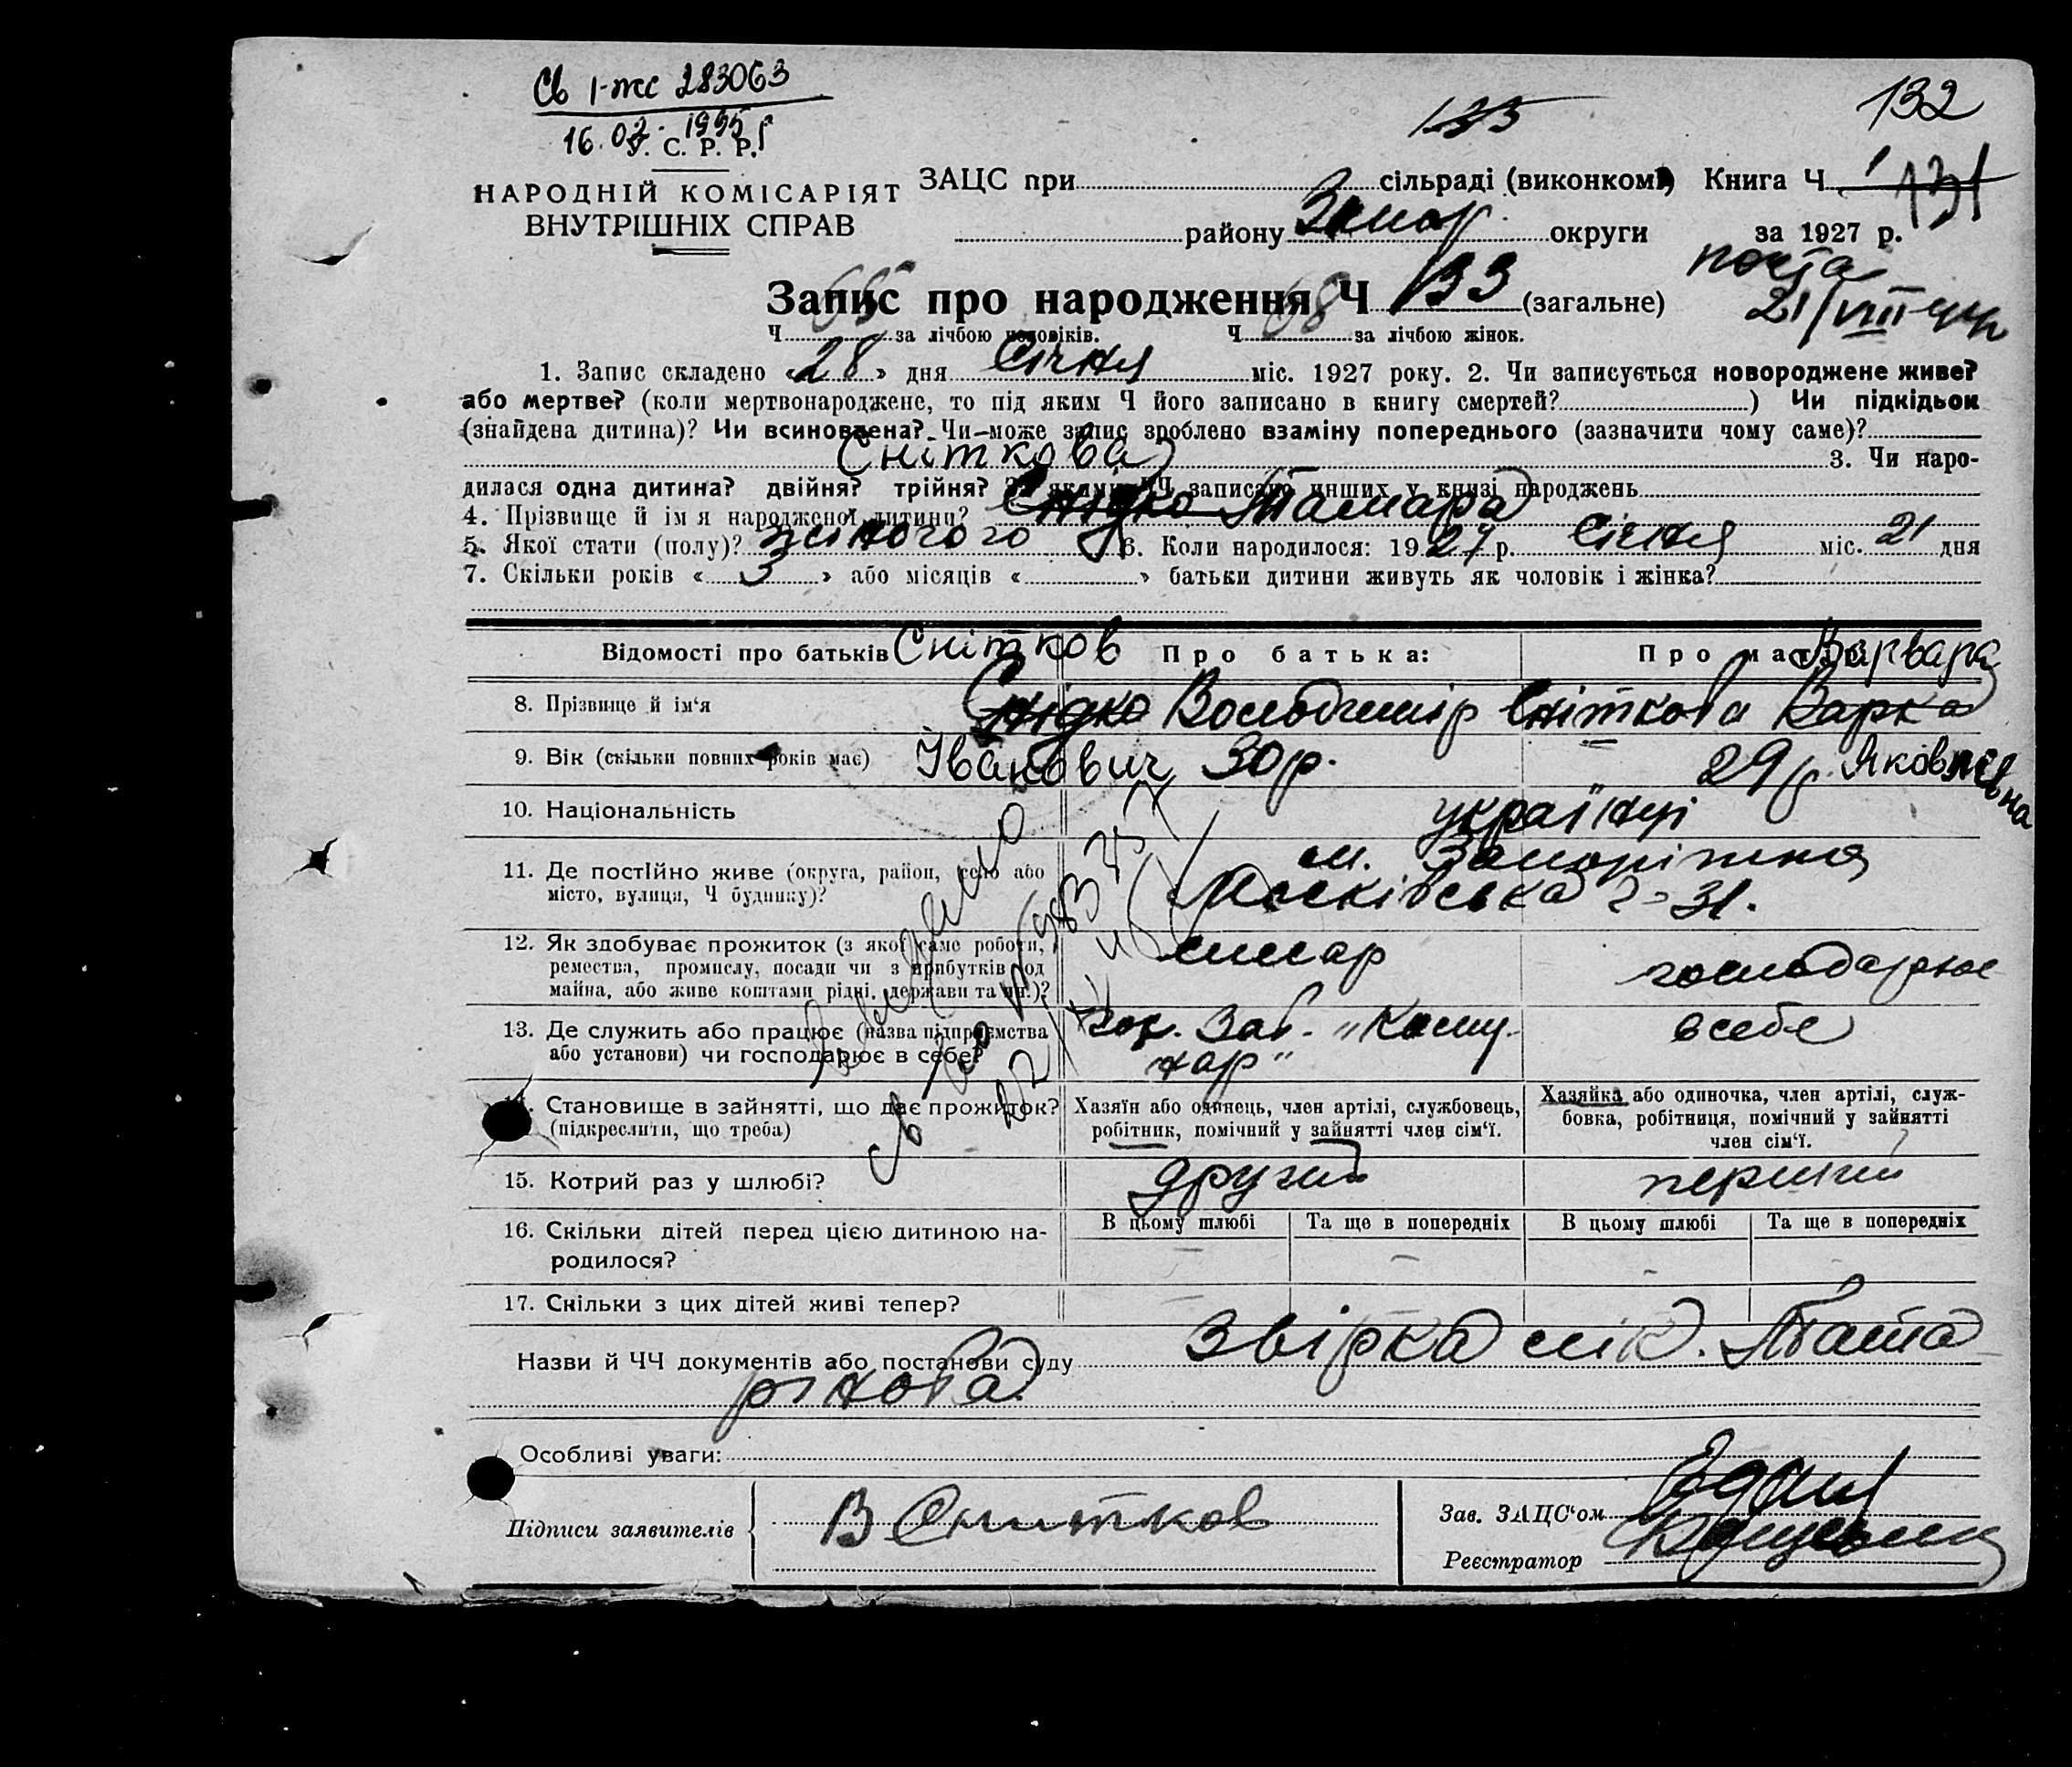 Св I-жс 283063
16.02.1995
У. С. Р. Р.
НАРОДНІЙ КОМІСАРІЯТ
ВНУТРІШНІХ СПРАВ
133
132
ЗАЦС при сільраді (виконкомі) Книга Ч 1 131
району Запор. округи за 1927 р.
21/VIII
Запис про народження Ч 133 (загальне)
Ч за лічбою чоловіків. Ч 68 за лічбою жінок.
1. Запис складено «28» дня Січня міс. 1927 року. 2. Чи записується новороджене живе?
або мертве? (коли мертвонароджене, то під яким Ч його записано в книгу смертей?) Чи підкідьок
(знайдена дитина)? Чи всиновлена? Чи може запис зроблено взаміну попереднього (зазначити чому саме)?
Сніткова 3. Чи наро-
дилася одна дитина? двійня? трійня? За якими ЧЧ записано инших у книзі народжень
4. Прізвище й ім'я народженої дитини? Снідко Тамара
5. Якої стати (полу)? жіночого 6. Коли народилося: 1927 р. Січня міс. 21 дня
7. Скільки років «3» або місяців « » батьки дитини живуть як чоловік і жінка?
Відомості про батьків Снітков Про батька: Про матір: Варвара
8. Прізвище й ім'я Снідко Володимір Сніткова Варка
9. Вік (скільки повних років має) Іванович 30 р. 29 р. Яковлевна
10. Національність українці
11. Де постійно живе (округа, район, село або
місто, вулиця, Ч будинку)?
м. Запоріжжя
Московська 31.
12. Як здобуває прожиток (з якої саме роботи,
ремества, промислу, посади чи з прибутків од
майна, або живе коштами рідні, держави та ин.)?
слюсар господарює
13. Де служить або працює (назва підприємства
або установи) чи господарює в себе?
Зав. „Кому-
нар"
в себе
14. Становище в зайнятті, що дає прожиток?
(підкреслити, що треба)
Хазяїн або одинець, член артілі, службовець,
робітник, помічний у зайнятті член сім'ї.
Хазяйка або одиночка, член артілі, служ-
бовка, робітниця, помічний у зайнятті
член сім'ї.
15. Котрий раз у шлюбі? другий перший
16. Скільки дітей перед цією дитиною на-
родилося?
В цьому шлюбі Та ще в попередніх В цьому шлюбі Та ще в попередніх
17. Скільки з цих дітей живі тепер?
Назви й ЧЧ документів або постанови суду Звірка лік. Тата-
рінова
Особливі уваги:
Підписи заявителів В Снитков
Зав. ЗАЦС'ом
Реєстратор